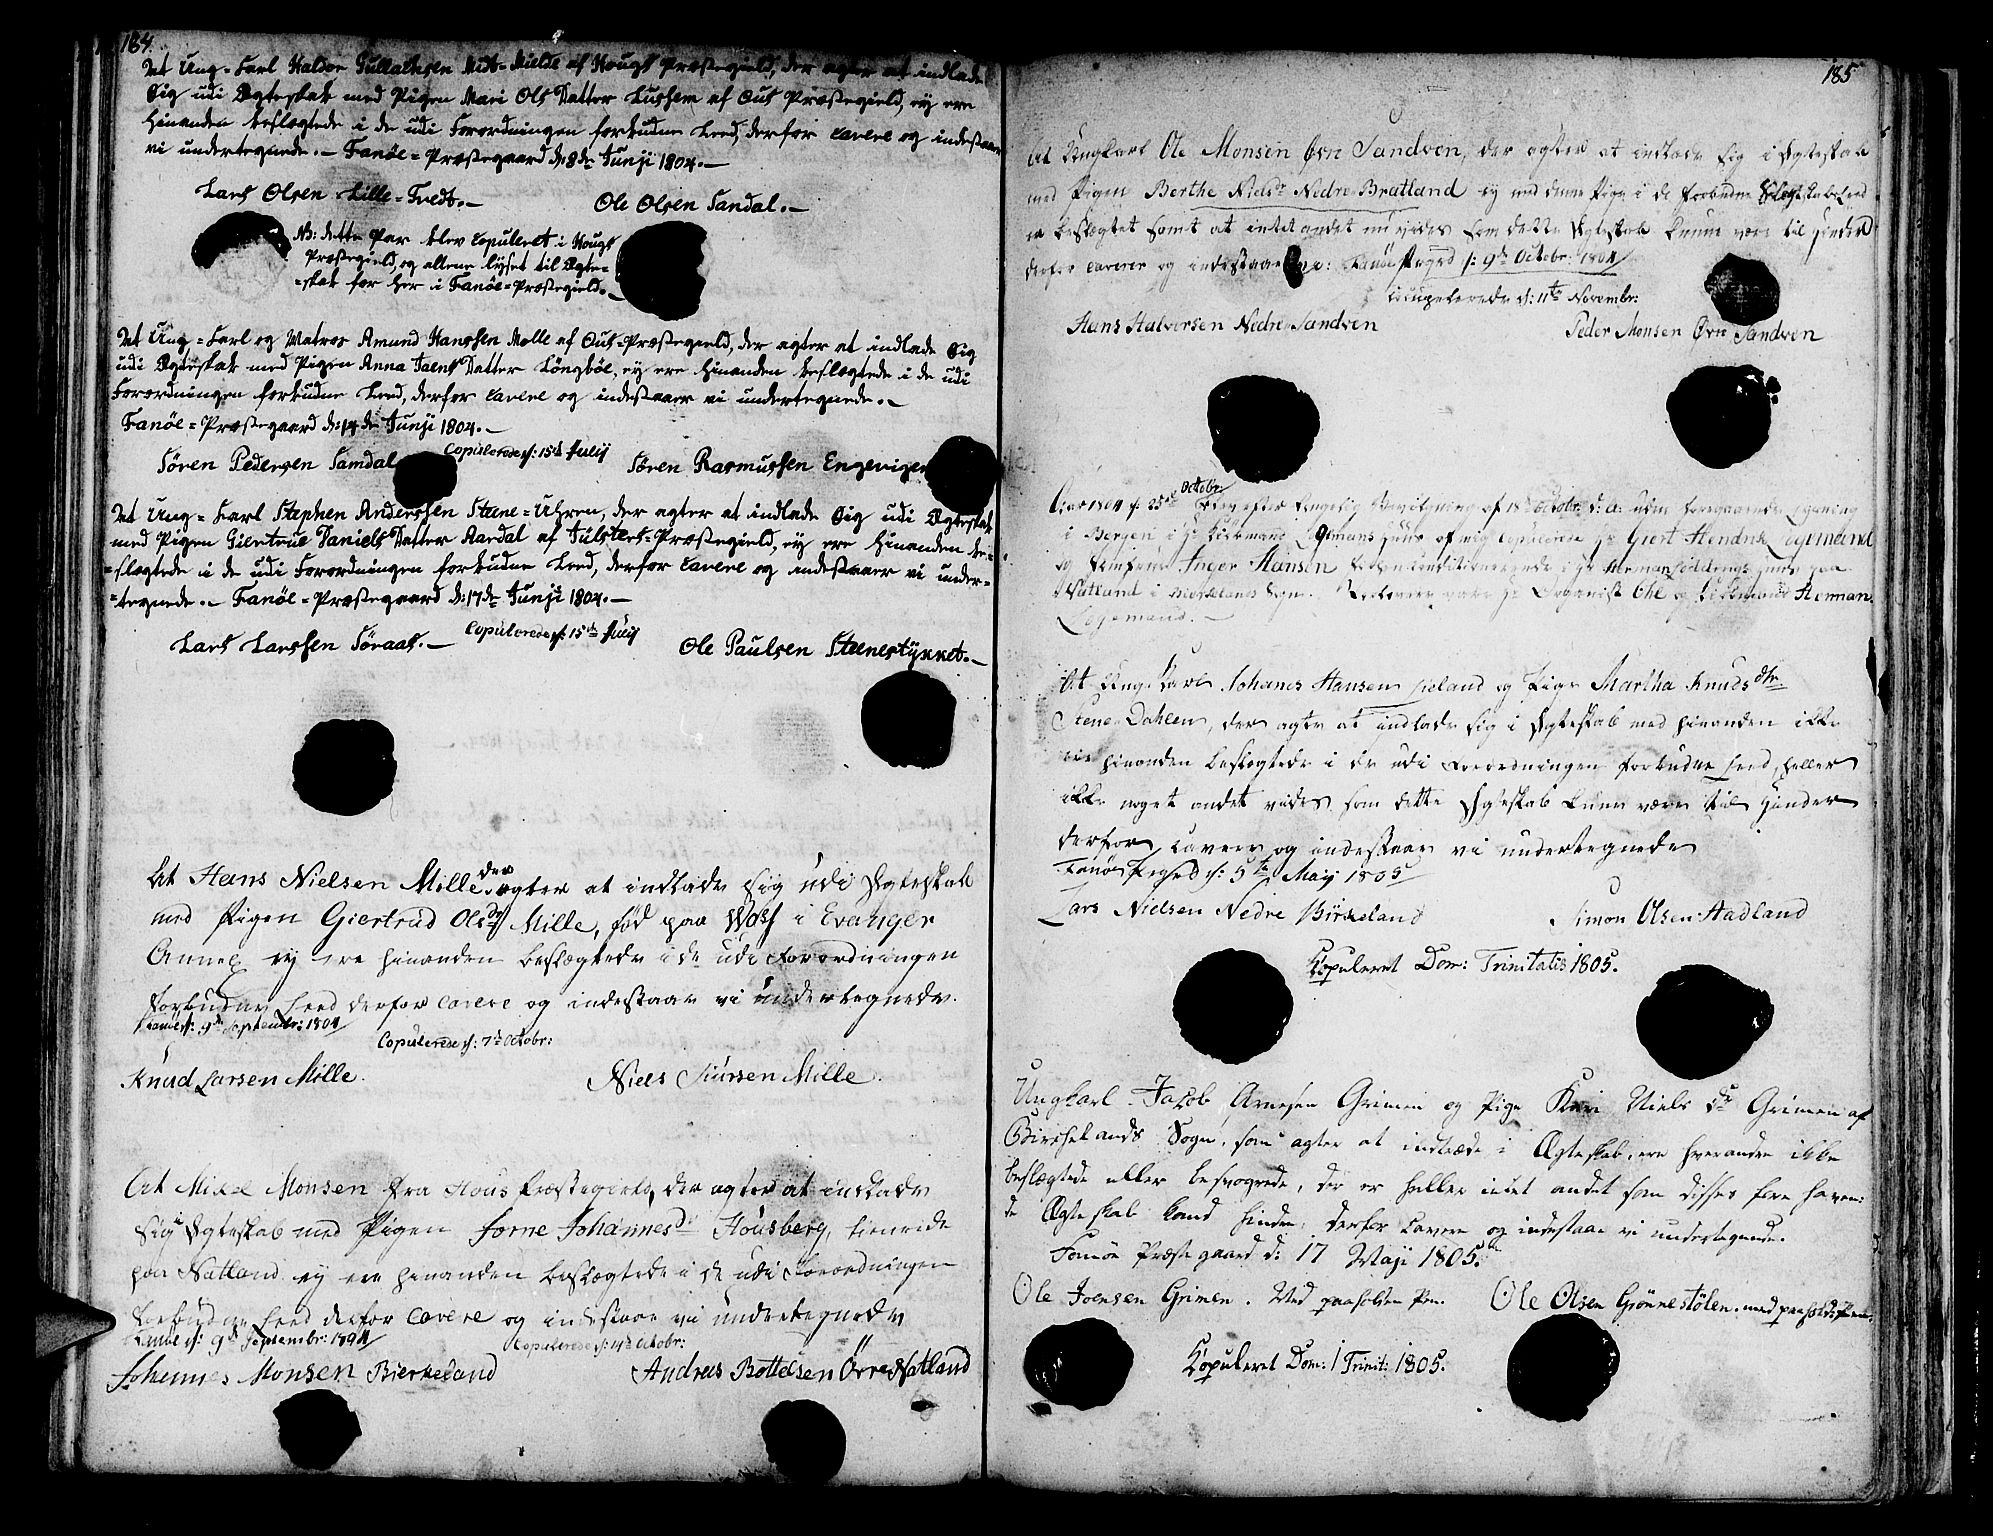 184.
At Ung-Karl Haldor Gullachsen Midt-Milde af Hougs Præstegield, der agter at indlade
Sig udi Ægteskab med Pigen Mari Ols Datter Lussem af Ous Præstegield, ey ere
hinanden beslægtede i de udi Forordningen forbudne Leed, derfor cavere og indestaaer
vi undertegnede.- Fanøe-Præstegaard d: 8de Junji 1804.-
Lars Olsen Lille-Tvedt.-
Ole Olsen Sandal.-
NB: dette Par blev Copuleret i Hougs
Præstegield, og allene lyset til Ægte-
=skab for her i Fanøe-Præstegield.-
At Ung-Karl og Matros Amund Hanssen Molle af Ous-Præstegield, der agter at indlade Sig
udi Ægteskab med Pigen Anna Jaens Datter Løngbøe, ey ere hinanden beslægtede i de udi
Forordningen forbudne Leed, derfor cavere og indestaaer vi undertegnede.-
Fanøe-Præstegaard d: 14de Junji 1804.-
Copulerede d: 15de Julij
Søren Pedersen Samdal
Søren Rasmussen Engevigen
At Ung-Karl Stephen Anderssen Steene-Uhren, der agter at indlade Sig udi Ægteskab
med Pigen Giertrue Daniels Datter Aardal af Jülsters-Præstegield, ey ere hinanden be-
=slægtede i de udi Forordningen forbudne Leed, derfor cavere og indestaaer vi under-
=tegnede.- Fanøe-Præstegaard d: 17de Junji 1804.-
Copulerede d: 15de Julij
Lars Larssen Søraas.-
Ole Paulsen Steenestykket.-
At Hans Nielsen Mille der agter at indlade sig udi Ægteskab
med Pigen Giertrud Olsdr Mille, fød paa Woss i Evanger
Annex ey ere hinanden beslægtede i de udi Forordningen
forbudne Leed derfor cavere og indestaar vi undertegnede.
Fanøe d: 9de Septembr: 1804
Copulerede d: 7de Octobr:
Knud Larsen Mille.
Niels Siursen Mille.
At Mikel Monsen fra Hous Præstegield, der agter at indlade
sig i Ægteskab med Pigen Jorne Johannesdr Housberg, tienende
paa Natland ey ere hinanden beslægtede i de udi Forordningen
forbudne Leed derfor cavere og indestaae vi undertegnede
Fanøe d: 9de Septembr: 1804
Copulerede d: 14de Octobr:
Johannes Monsen Bierkeland
Andreas Bottelsen Övre Natland
185
At Ungkarl Ole Monsen Øvre Sandven, der agter at indlade sig i Ægteskab
med Pigen Berthe Nielsdr Nedre-Bratland ey med denne Pige i de forbudne Slegtskabs Leed
er beslægtet samt at intet andet nu vides som dette Ægteskab kunne være til Hinder
derfor caverer og indestaar vi: Fanøe Prgrd d: 9de Octobr: 1804
Copulerede d: 11te Novembr:
Hans Halversen Nedre-Sandven
Peder Monsen Øvre Sandven
Octobr:
i Bergen i Hr Giert Hendrik Logemand
og Jomfrue Inger Hansen
Hr Organist Ohl og Herman
Logemand.-
At Ung-Karl Johanes Hansen Lieland og Pige Martha Knudsdtr
Stene-Dahlen, der agte at indlade sig i Ægteskab med hinanden ikke
ere hinanden beslægtede i de udi Forordningen forbudne Leed, heller
ikke noget andet vides som dette Ægteskab kunne være til Hinder
derfor cavere og indestaar vi undertegnede
Fanøe Prgrd d: 5te May 1805
Lars Nielsen Nedre Birkeland
Simon Olsen Aadland
Copuleret Dom: Trinitatis 1805.
Ungkarl Jacob Arnesen Grimen og Pige Kari Niels Dr Grimen af
Birchelands Sogn, som agter at indtræde i Ægteskab, ere hverandre ikke
beslægtede eller besvogrede, der er heller intet andet som disses fore haven-
de Ægteskab kand hindre: derfor cavere og indestaae vi undertegnede.
Fanøe Præstegaard d: 17 Maji 1805.
Ole Joensen Grimen. Med paaholden Pen.
Ole Olsen Grönnestölen. med paaholden Pen.
Copuleret Dom: 1 Trinit: 1805.